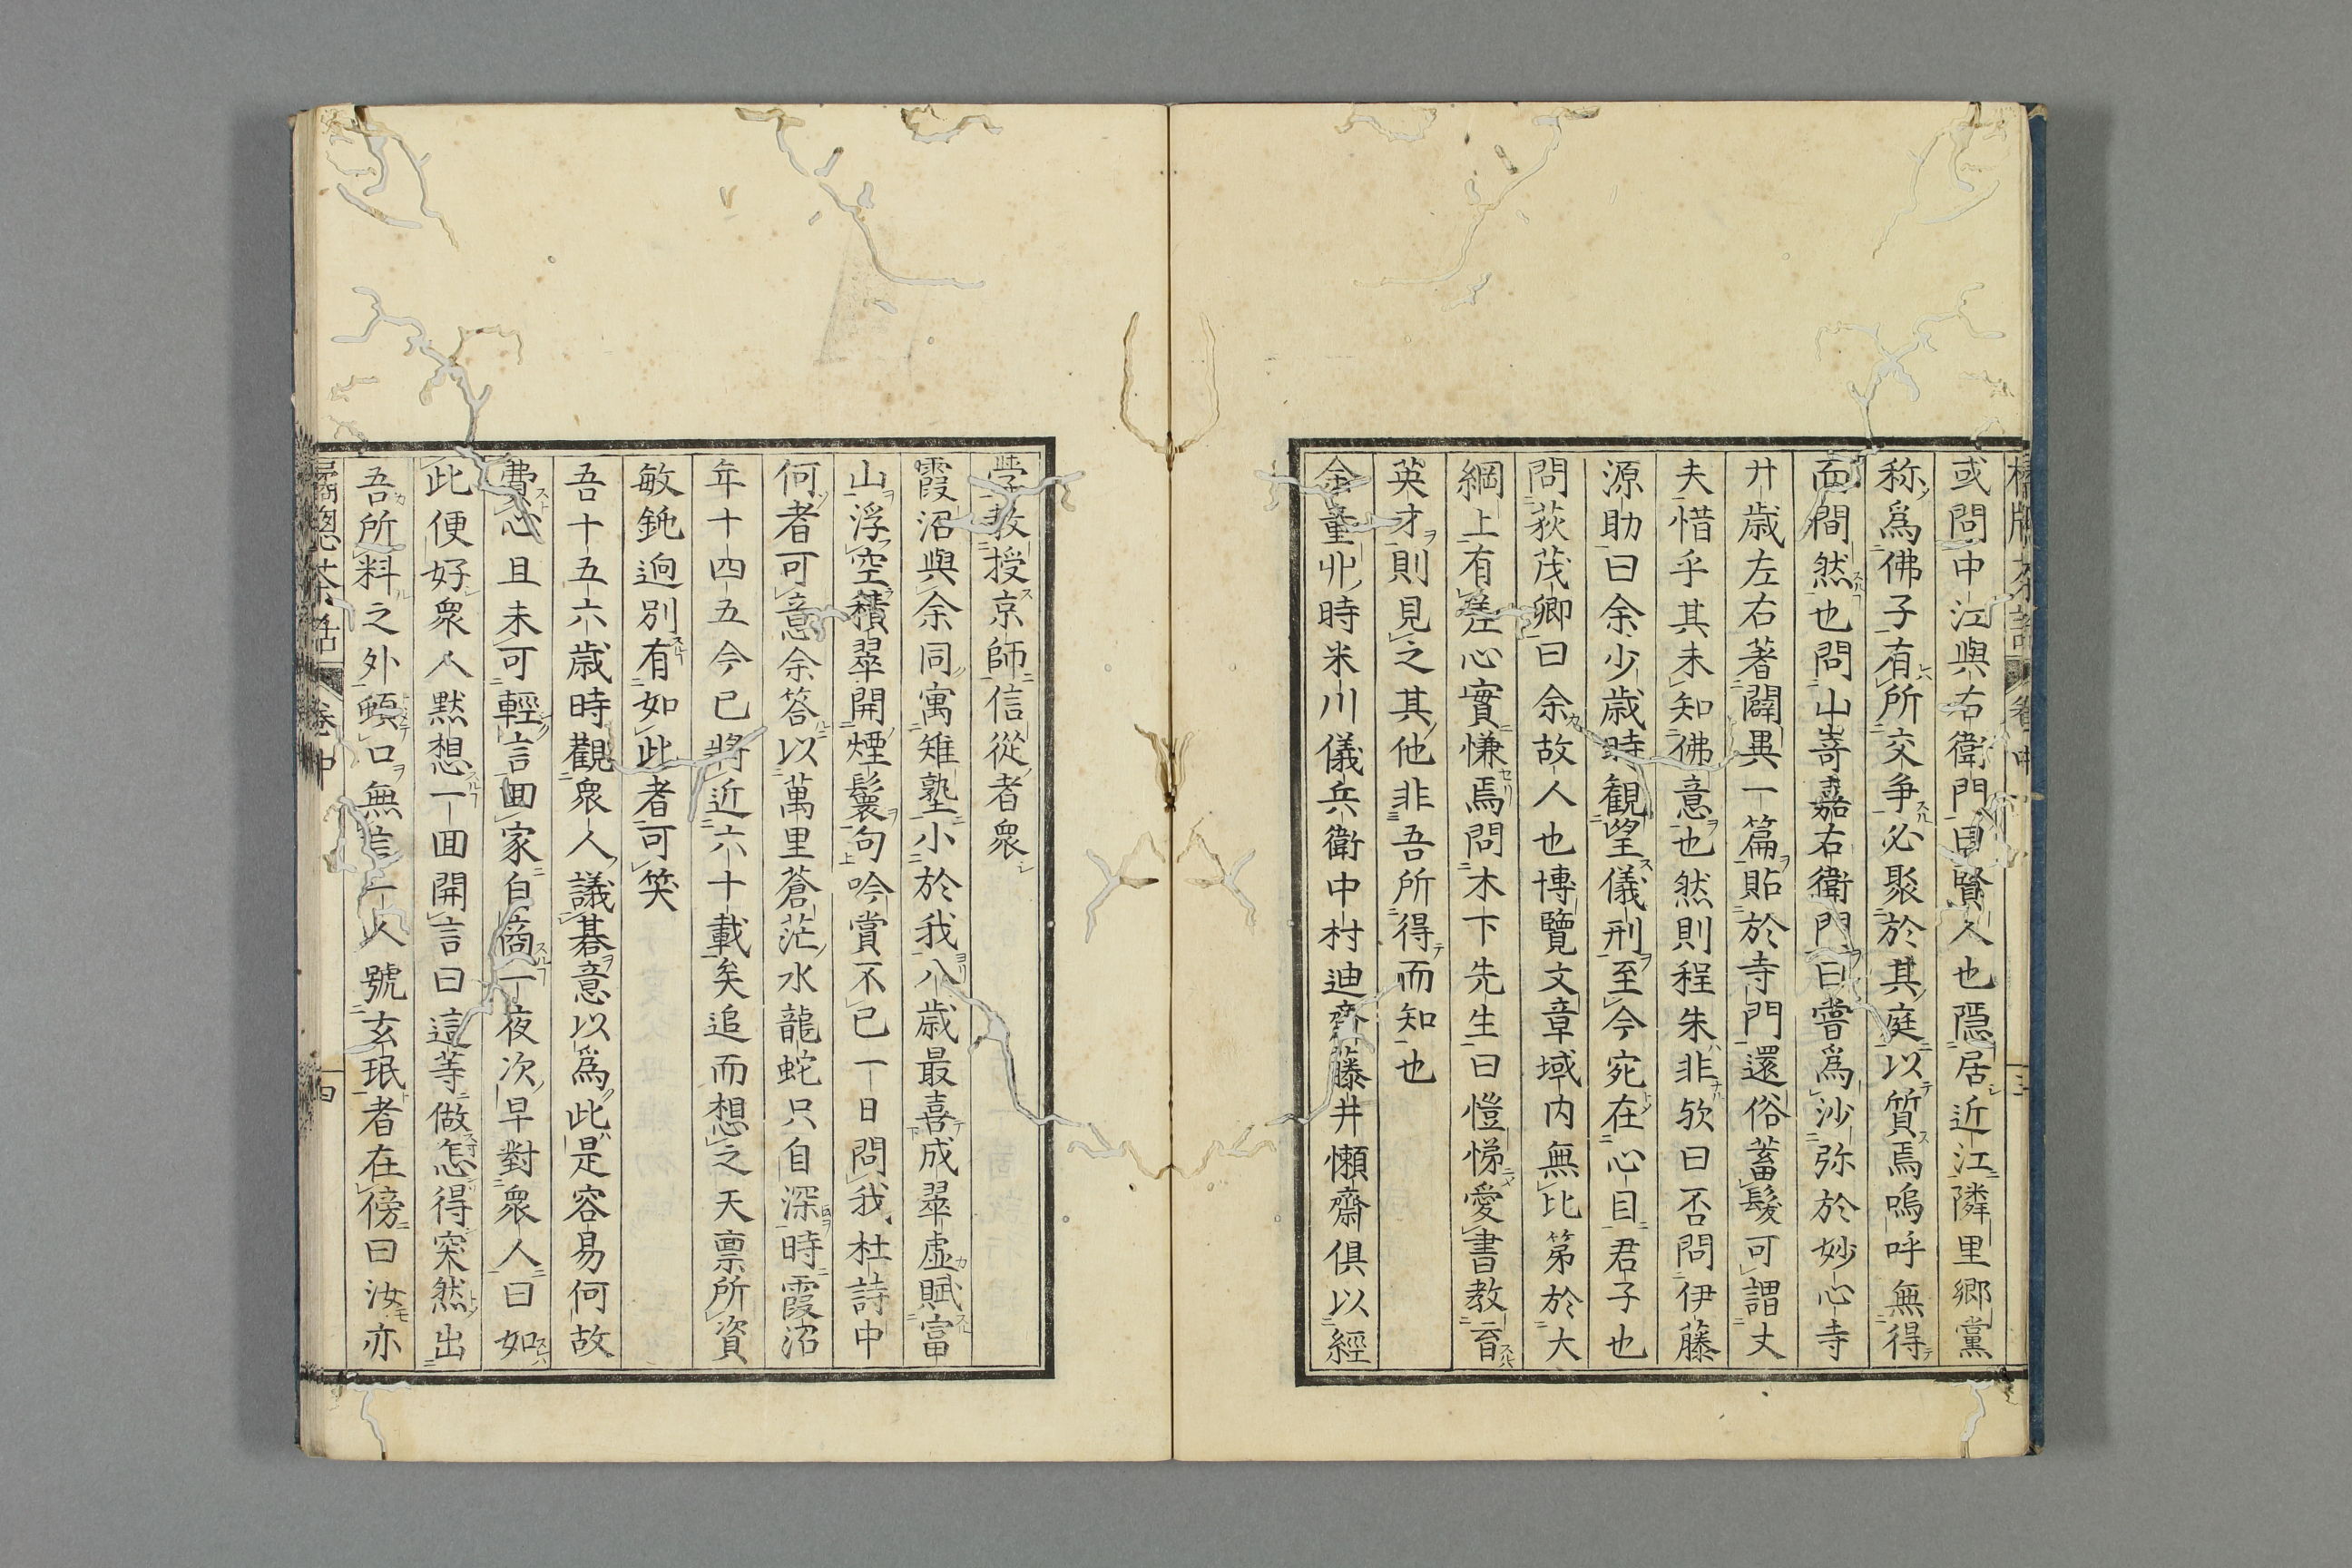 或問中江與右衛門曰賢人也隱居近江隣里郷黨
称爲佛子有所交争必聚於其庭以質焉嗚呼無得
而間然也問山嵜嘉右衛門曰嘗爲沙弥於妙心寺
廾歳左右著闢異一篇貼於寺門還俗蓄髮可謂丈
夫惜乎其未知佛意也然則程朱非欤曰否問伊藤
源助曰余少歳時観望儀刑至今宛在心目君子也
問荻茂卿曰余故人也博覽文章域内無比第於大
綱上有差心實慊焉問木下先生曰愷悌愛書教育
英才則見之其他非吾所得而知也
余童丱時米川儀兵衛中村迪齋藤井懶齋俱以經
學教授京師信從者衆
霞沼與余同寓雉塾小於我八歳最喜成翠虚賦富
山浮空積翠開煙鬟句吟賞不已一日問我杜詩中
何者可意余答以萬里蒼茫水龍蛇只自深時霞沼
年十四五今已將近六十載矣追而想之天禀所資
敏鈍逈別有如此者可笑
吾十五六歳時觀衆人議碁意以爲此是容易何故
費心且未可輕言囬家自商一夜次早對衆人曰如
此便好衆人默想一囬開言曰這等做怎得突然出
吾所料之外頓口無言一人號玄珉者在傍曰汝亦
卷中
四